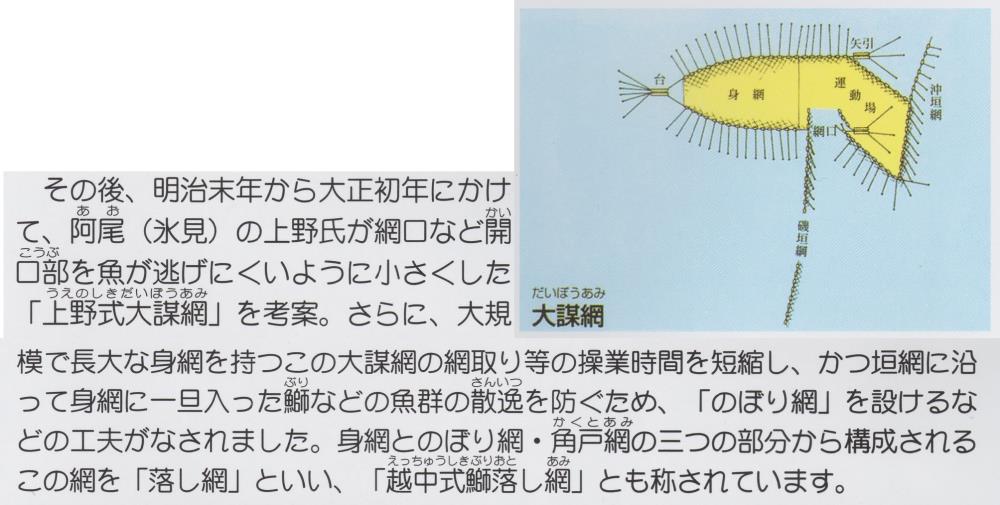 台
身網
矢引
運動場
網口
沖垣網
磯垣網
だいぼうあみ
大謀網
その後、明治末年から大正初年にかけ
あお かい
て、阿尾（氷見）の上野氏が網口など開
こうぶ
口部を魚が逃げにくいように小さくした
うえのしきだいぼうあみ
「上野式大謀網」を考案。さらに、大規
模で長大な身網を持つこの大謀網の網取り等の操業時間を短縮し、かつ垣網に沿
ぶり さんいつ
って身網に一旦入った鰤などの魚群の散逸を防ぐため、「のぼり網」を設けるな
かくとあみ
どの工夫がなされました。身網とのぼり網・角戸網の三つの部分から構成される
えっちゅうしきぶりおと あみ
この網を「落し網」といい、「越中式鰤落し網」とも称されています。